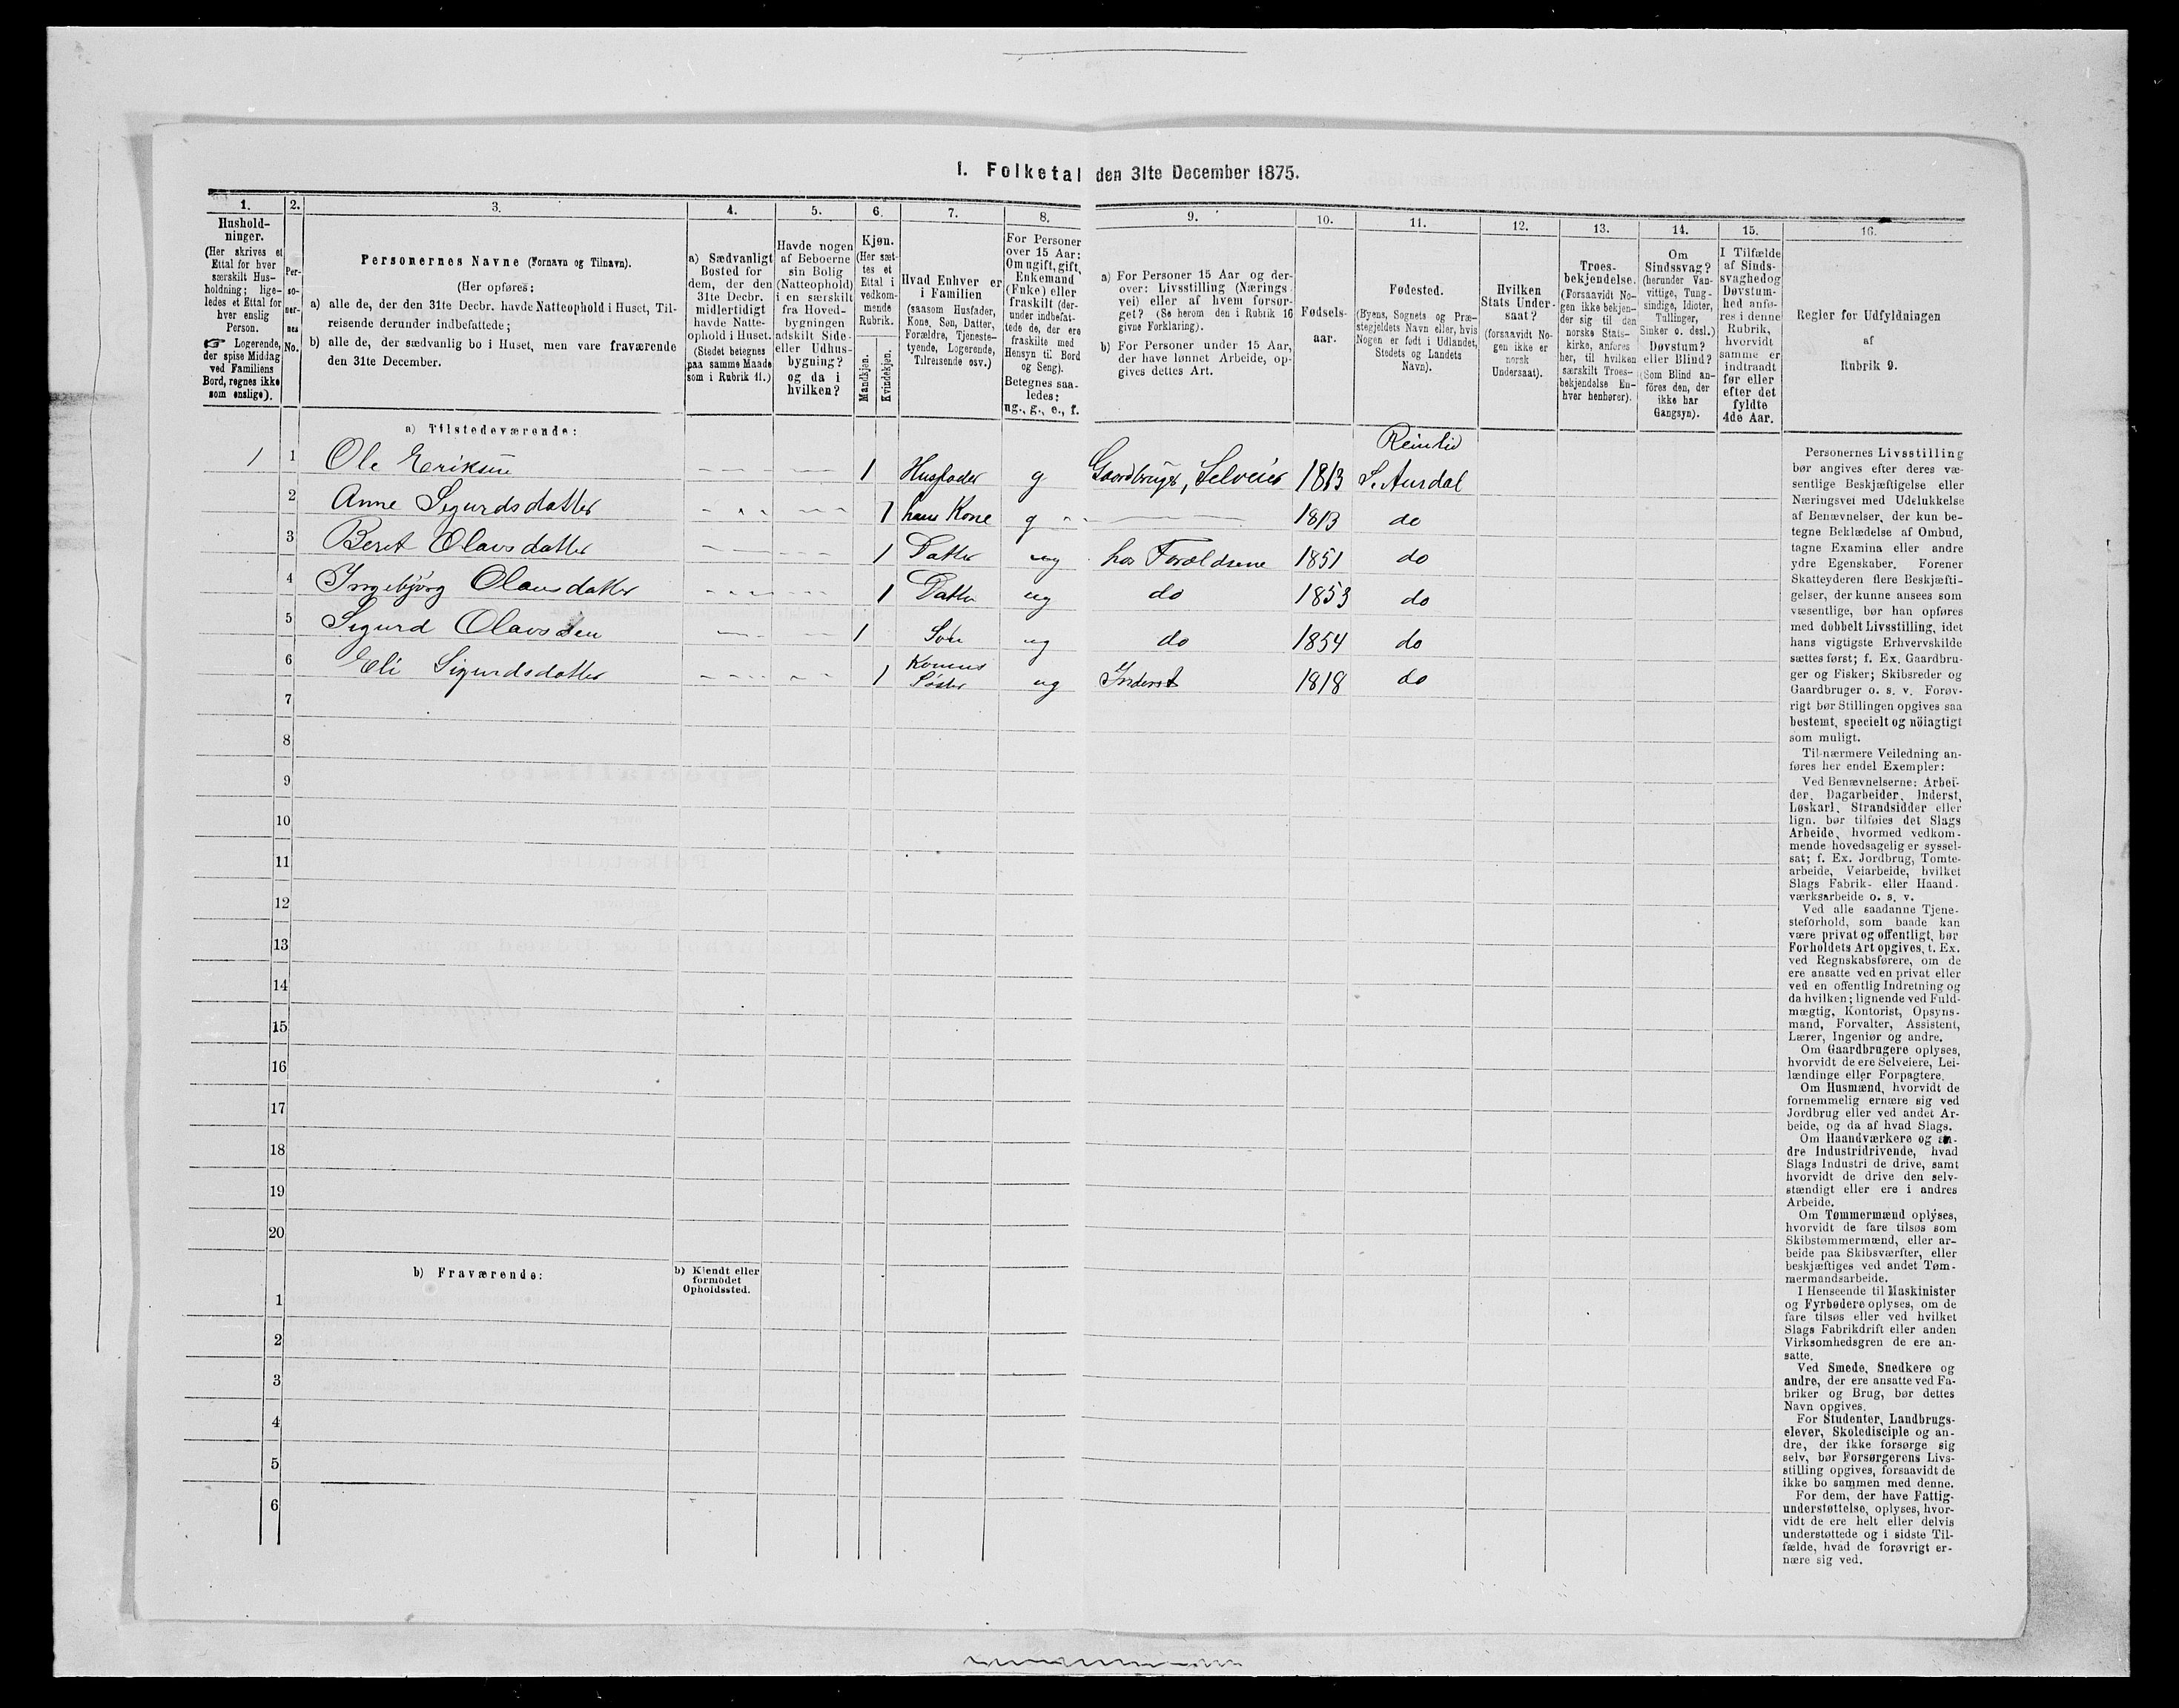 I. Folketal den 31te December 1875.
1. 2. 3. 4. 5. 6. 7. 8. 9. 10. 11. 12. 13. 14. 15. 16.
Hushold-
ninger.
(Her skrives et
Ettal for hver
særskilt Hus-
holdning; lige-
ledes et Ettal for
hver enslig
Person.
☞ Logerende,
der spise Middag
ved Familiens
Bord, regnes ikke
som enslige).
Per-
so-
ner-
nes
No.
Personernes Navne (Fornavn og Tilnavn).
(Her opføres:
a) alle de, der den 31te Decbr. havde Natteophold i Huset, Til-
reisende derunder indbefattede;
b) alle de, der sædvanlig bo i Huset, men vare fraværende
den 31te December.
a) Sædvanligt
Bosted for
dem, der den
31te Decbr.
midlertidigt
havde Natte-
ophold i Huset.
(Stedet betegnes
paa samme Maade
som i Rubrik 11.)
Havde nogen
af Beboerne
sin Bolig
(Natteophold)
i en særskilt
fra Hoved-
bygningen
adskilt Side-
eller Udhus-
bygning?
og da i
hvilken?
Kjøn.
(Her sæt-
tes et
Ettal i
vedkom-
mende
Rubrik.
Mandkjøn.
Kvindekjøn.
Hvad Enhver er
i Familien
(saasom Husfader,
Kone, Søn, Datter,
Forældre, Tjeneste-
tyende, Logerende,
Tilreisende osv.)
For Personer
over 15 Aar:
Om ugift, gift,
Enkemand
(Enke) eller
fraskilt (der-
under indbefat-
tede de, der ere
fraskilte med
Hensyn til Bord
og Seng).
Betegnes saa-
ledes:
ug., g., e., f.
a) For Personer 15 Aar og der-
over: Livsstilling (Nærings-
vei) eller af hvem forsør-
get? (Se herom den i Rubrik 16
givne Forklaring).
b) For Personer under 15 Aar,
der have lønnet Arbeide, op-
gives dettes Art.
Fødsels-
aar.
Fødested.
(Byens, Sognets og Præ-
stegjeldets Navn eller, hvis
Nogen er født i Udlandet,
Stedets og Landets
Navn).
Hvilken
Stats Under-
saat?
(forsaavidt No-
gen ikke er
norsk
Undersaat).
Troes-
bekjendelse.
(Forsaavidt No-
gen ikke bekjen-
der sig til den
norske Stats-
kirke, anføres
her, til hvilken
særskilt Troes-
bekjendelse En-
hver henhører).
Om
Sindssvag?
(herunder Van-
vittige, Tung-
sindige, Idioter,
Tullinger,
Sinker o. desl.)
Døvstum?
eller Blind?
(Som Blind an-
föres den, der
ikke har
Gangsyn).
I Tilfælde
af Sinds-
svaghed og
Døvstum-
hed anfø-
res i denne
Rubrik,
hvorvidt
samme er
indtraadt
før eller
efter det
fyldte
4de Aar.
Regler for Udfyldningen
af
Rubrik 9.
a) Tilstedeværende:
Reinlid
1 1 Ole Eriksen 1 Husfader g Gaardbruger, Selveier 1813 S. Aurdal
2 Anne Sigurdsdatter 1 hans Kone g 1813 do
3 Berit Olavsdatter 1 Datter ug hos Forældrene 1851 do
4 Ingebjörg Olausdatter 1 Datter ug do 1853 do
5 Sigurd Olavssen 1 Søn ug do 1854 do
6 Eli Sigurdsdatter 1 Konens Søster ug Inderst 1818 do
7
8
9
10
11
12
13
14
15
16
17
18
19
20
b) Fraværende:
b) Kjendt eller
formodet
Opholdssted.
1
2
3
4
5
6
Personernes Livsstilling
bør angives efter deres væ-
sentlige Beskjæftigelse eller
Næringsvei med Udelukkelse
af Benævnelser, der kun be-
tegne Beklædelse af Ombud,
tagne Examina eller andre
ydre Egenskaber. Forener
Skatteyderen flere Beskjæfti-
gelser, der kunne ansees som
væsentlige, bør han opføres
med dobbelt Livsstilling, idet
hans vigtigste Erhvervskilde
sættes først; f. Ex. Gaardbru-
ger og Fisker; Skibsreder og
Gaardbruger o. s. v. Forøv-
rigt bør Stillingen opgives saa
bestemt, specielt og nöiagtigt
som muligt.
Til nærmere Veiledning an-
føres her endel Exempler:
Ved Benævnelserne: Arbei-
der, Dagarbeider, Inderst,
Løskarl, Strandsidder eller
lign. bør tilføies det Slags
Arbeide, hvormed vedkom-
mende hovedsagelig er syssel-
sat; f. Ex. Jordbrug, Tomte-
arbeide, Veiarbeide, hvilket
Slags Fabrik- eller Haand-
værksarbeide o. s. v.
Ved alle saadanne Tjene-
steforhold, som baade kan
være privat og offentligt, bør
Forholdets Art opgives, t. Ex.
ved Regnskabsførere, om de
ere ansatte ved en privat eller
ved en offentlig Indretning og
da hvilken; lignende ved Fuld-
mægtig, Kontorist, Opsyns-
mand, Forvalter, Assistent,
Lærer, Ingeniør og andre.
Om Gaardbrugere oplyses,
hvorvidt de ere Selveiere, Lei-
lændinge eller Forpagtere.
Om Husmænd, hvorvidt de
fornemmelig ernære sig ved
Jordbrug eller ved andet Ar-
beide, og da af hvad Slags.
Om Haandværkere og an-
dre Industridrivende, hvad
Slags Industri de drive, samt
hvorvidt de drive den selv-
stændigt eller ere i andres
Arbeide.
Om Tømmermænd oplyses,
hvorvidt de fare tilsøs som
Skibstømmermænd, eller ar-
beide paa Skibsværfter, eller
beskjæftiges ved andet Tøm-
mermandsarbeide.
I Henseende til Maskinister
og Fyrbødere oplyses, om de
fare tilsøs eller ved hvilket
Slags Fabrikdrift eller anden
Virksomhedsgren de ere an-
satte.
Ved Smede, Snedkere og
andre, der ere ansatte ved Fa-
briker og Brug, bør dettes
Navn opgives.
For Studenter, Landbrugs-
elever, Skoledisciple og an-
dre, der ikke forsørge sig
selv, bør Forsørgerens Livs-
stilling opgives, forsaavidt de
ikke bo sammen med denne.
For dem, der have Fattig-
understøttelse, oplyses, hvor-
vidt de ere helt eller delvis
understøttede og i sidste Til-
fælde, hvad de forøvrigt er-
nære sig ved.